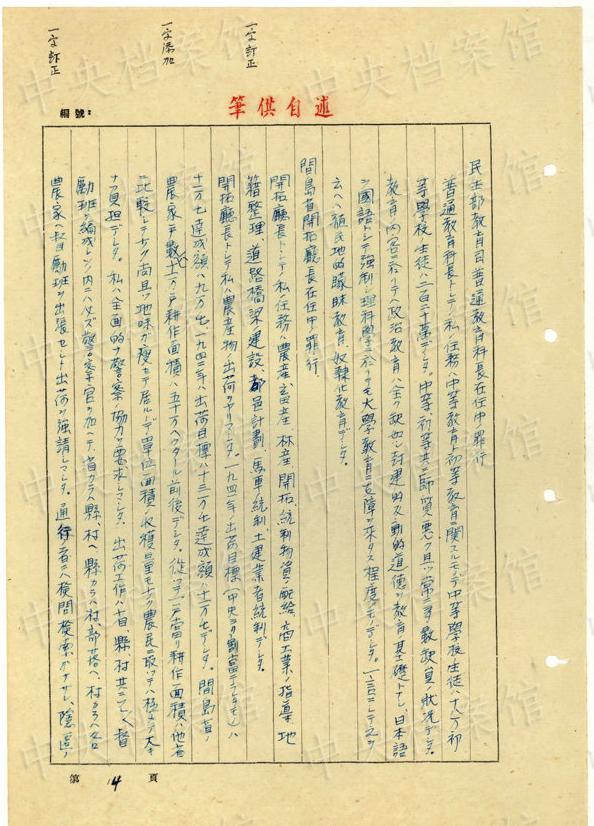 一字訂正
一字添加
一字訂正
筆供自述
編號:
民生部教育司普通教育科長在任中ノ罪行
普通教育科長トシテノ私ノ任務ハ中等教育、初等教育ニ関スルモノデ中等學校生徒ハ十八万初
等學校生徒ハ二百二十萬デシタ。中等、初等共ニ師質悪ク且ツ常ニ教師欠員ノ状況デシタ。
教育内容ニ於テハ政治教育ハ全ク欽如シ封建的反動的道徳ヲ教育ノ基礎トナシ、日本語
ヲ國語トシテ強制シ理科學ニ於テモ大學教育ニ支障ヲ来タス程度ノモノデシタ。一言ニシテ之ヲ
云ヘバ植民地的曚昧教育、奴隷化教育デシタ。
間島省開拓廳長在任中ノ罪行
開拓廳長トシテノ私ノ任務ハ農産、畜産、林産、開拓、統制物資ノ配給、商工業ノ指導、地
籍整理、道路橋梁ノ建設、都邑計劃、馬車統制、土建業者統制デシタ。
開拓廳長トシテ私ハ農産物ノ出荷ヲヤリマシタ。一九四二年ノ出荷目標(中央ヨリ割當テラレタモノ)ハ
十一万屯達成額ハ九万屯、一九四三年ハ出荷目標ハ十三万屯達成額ハ十一万屯デシタ。間島省ノ
農家戸數ハ十一万戸耕作面積ハ五十万ヘクタール前後デシタ。従ツテ一戸當リ耕作面積ハ他省
ニ比較シテ少ク尚且ツ地味ガ痩セテ居ルノデ單位面積ノ収獲量モ少ク農民ニ取ツテハ極メテ大キ
ナ負担デシタ。私ハ全面的ナ警察ノ協力ヲ要求シマシタ。出荷工作ハ省、縣、村共ニ督
勵班ヲ編成シソノ内ヘハ必ズ警察官ヲ加ヘテ省カラハ縣、村ヘ、縣カラハ村、部落ヘ、村カラハ各
農家ヘ督勵班ヲ出張セシメ出荷ヲ強請シマシタ。通行者ニハ檢問檢索ガナサレ、隠匿ノ
第 14 頁